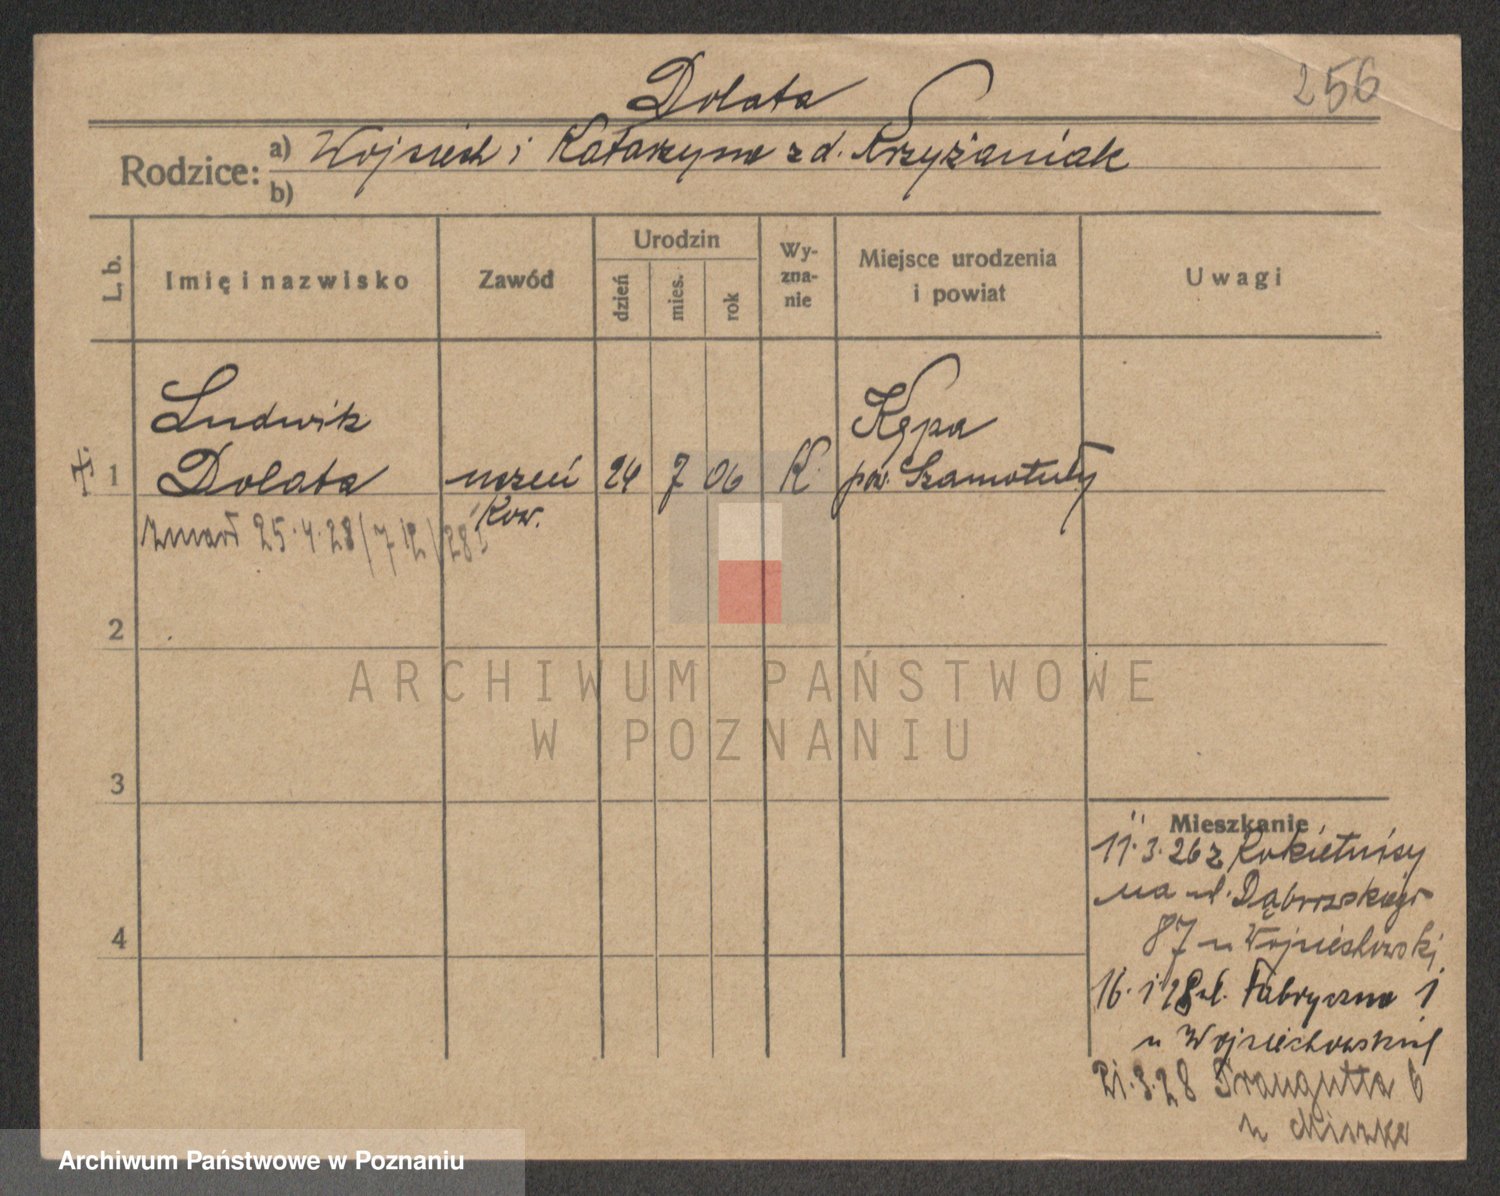 Dolata
256
Rodzice: a) Wojciech i Katarzyna z d. Krzyżaniak
b)
L. b.
Imię i nazwisko
Zawód
Urodzin
dzień
mies.
rok
Wy-
zna-
nie
Miejsce urodzenia
i powiat
Uwagi
Ludwik
Dolata
1
uczeń
kow.
24 7 06
K
Kępa
pow. Szamotuły
zmarł 25.4.28 /7 12/28
2
3
4
Mieszkanie
11.3.26 z Rokietnicy
na ul. Dąbrowskiego
87 u Wojciechowski
16.1 28 ul. Fabryczna 1
u Wojciechowskich
21.3.28 Traugutta 6
u
ARCHIWUM PAŃSTWOWE
W POZNANIU
Archiwum Państwowe w Poznaniu